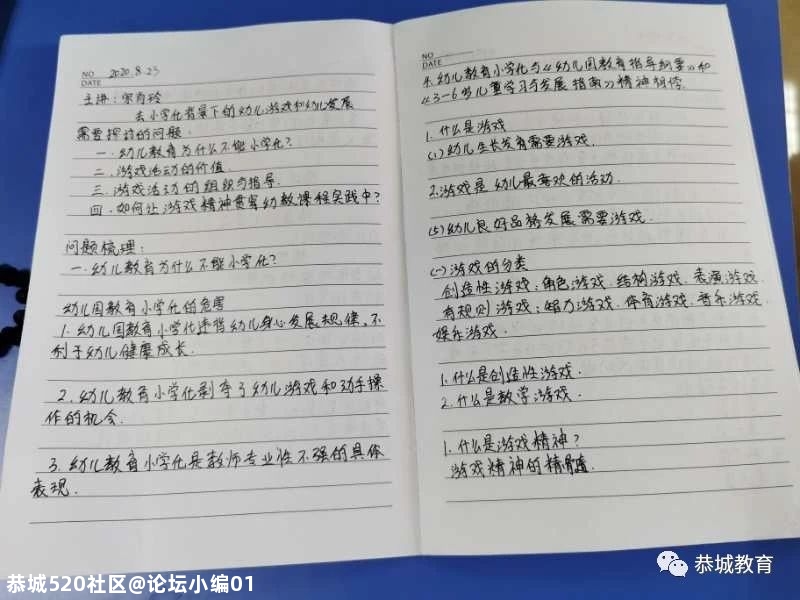 NO 2020.8.23
DATE
主讲：宋育玲
去小学化背景下的幼儿游戏和幼儿发展
需要探讨的问题.
一.幼儿教育为什么不能小学化?
二.游戏活动的价值.
三.游戏活动的组织与指导.
四.如何让游戏精神贯穿幼教课程实践中?
问题梳理:
一.幼儿教育为什么不能小学化?
幼儿园教育小学化的危害
1.幼儿园教育小学化违背幼儿身心发展规律,不
利于幼儿健康成长.
2.幼儿教育小学化剥夺了幼儿游戏和动手操
作的机会.
3.幼儿教育小学化是教师专业性不强的具体
表现.
NO
DATE
4.幼儿教育小学化与《幼儿园教育指导纲要》和
《3-6岁儿童学习与发展指南》精神相悖.
1.什么是游戏
(1)幼儿生长发育需要游戏.
2.游戏是幼儿最喜欢的活动.
(5)幼儿良好品格发展需要游戏.
(一)游戏的分类
创造性游戏:角色游戏.结构游戏.表演游戏.
有规则游戏:智力游戏.体育游戏.音乐游戏.
娱乐游戏.
1.什么是创造性游戏.
2.什么是教学游戏.
1.什么是游戏精神?
游戏精神的精髓.
恭城520社区@论坛小编01
恭城教育